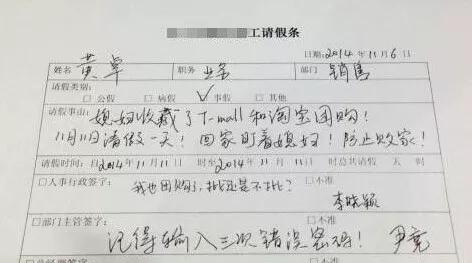 工请假条
日期：2014年11月6日
姓名 黄卓 职务 业务 部门 销售
请假类别：
□公假 □病假 ☑事假 □其他
请假事由：媳妇收藏了T-mall和淘宝团购！
11月11日请假一天！回家盯着媳妇！防止败家！
请假时间：自2014年11月11日 时至2014年11月11日 时总共请假 天 时
□人事行政签字： □不准
我也团购了，批还是不批？ 李晓颖
□部门主管签字： □不准
记得输入三次错误密码！ 尹亮